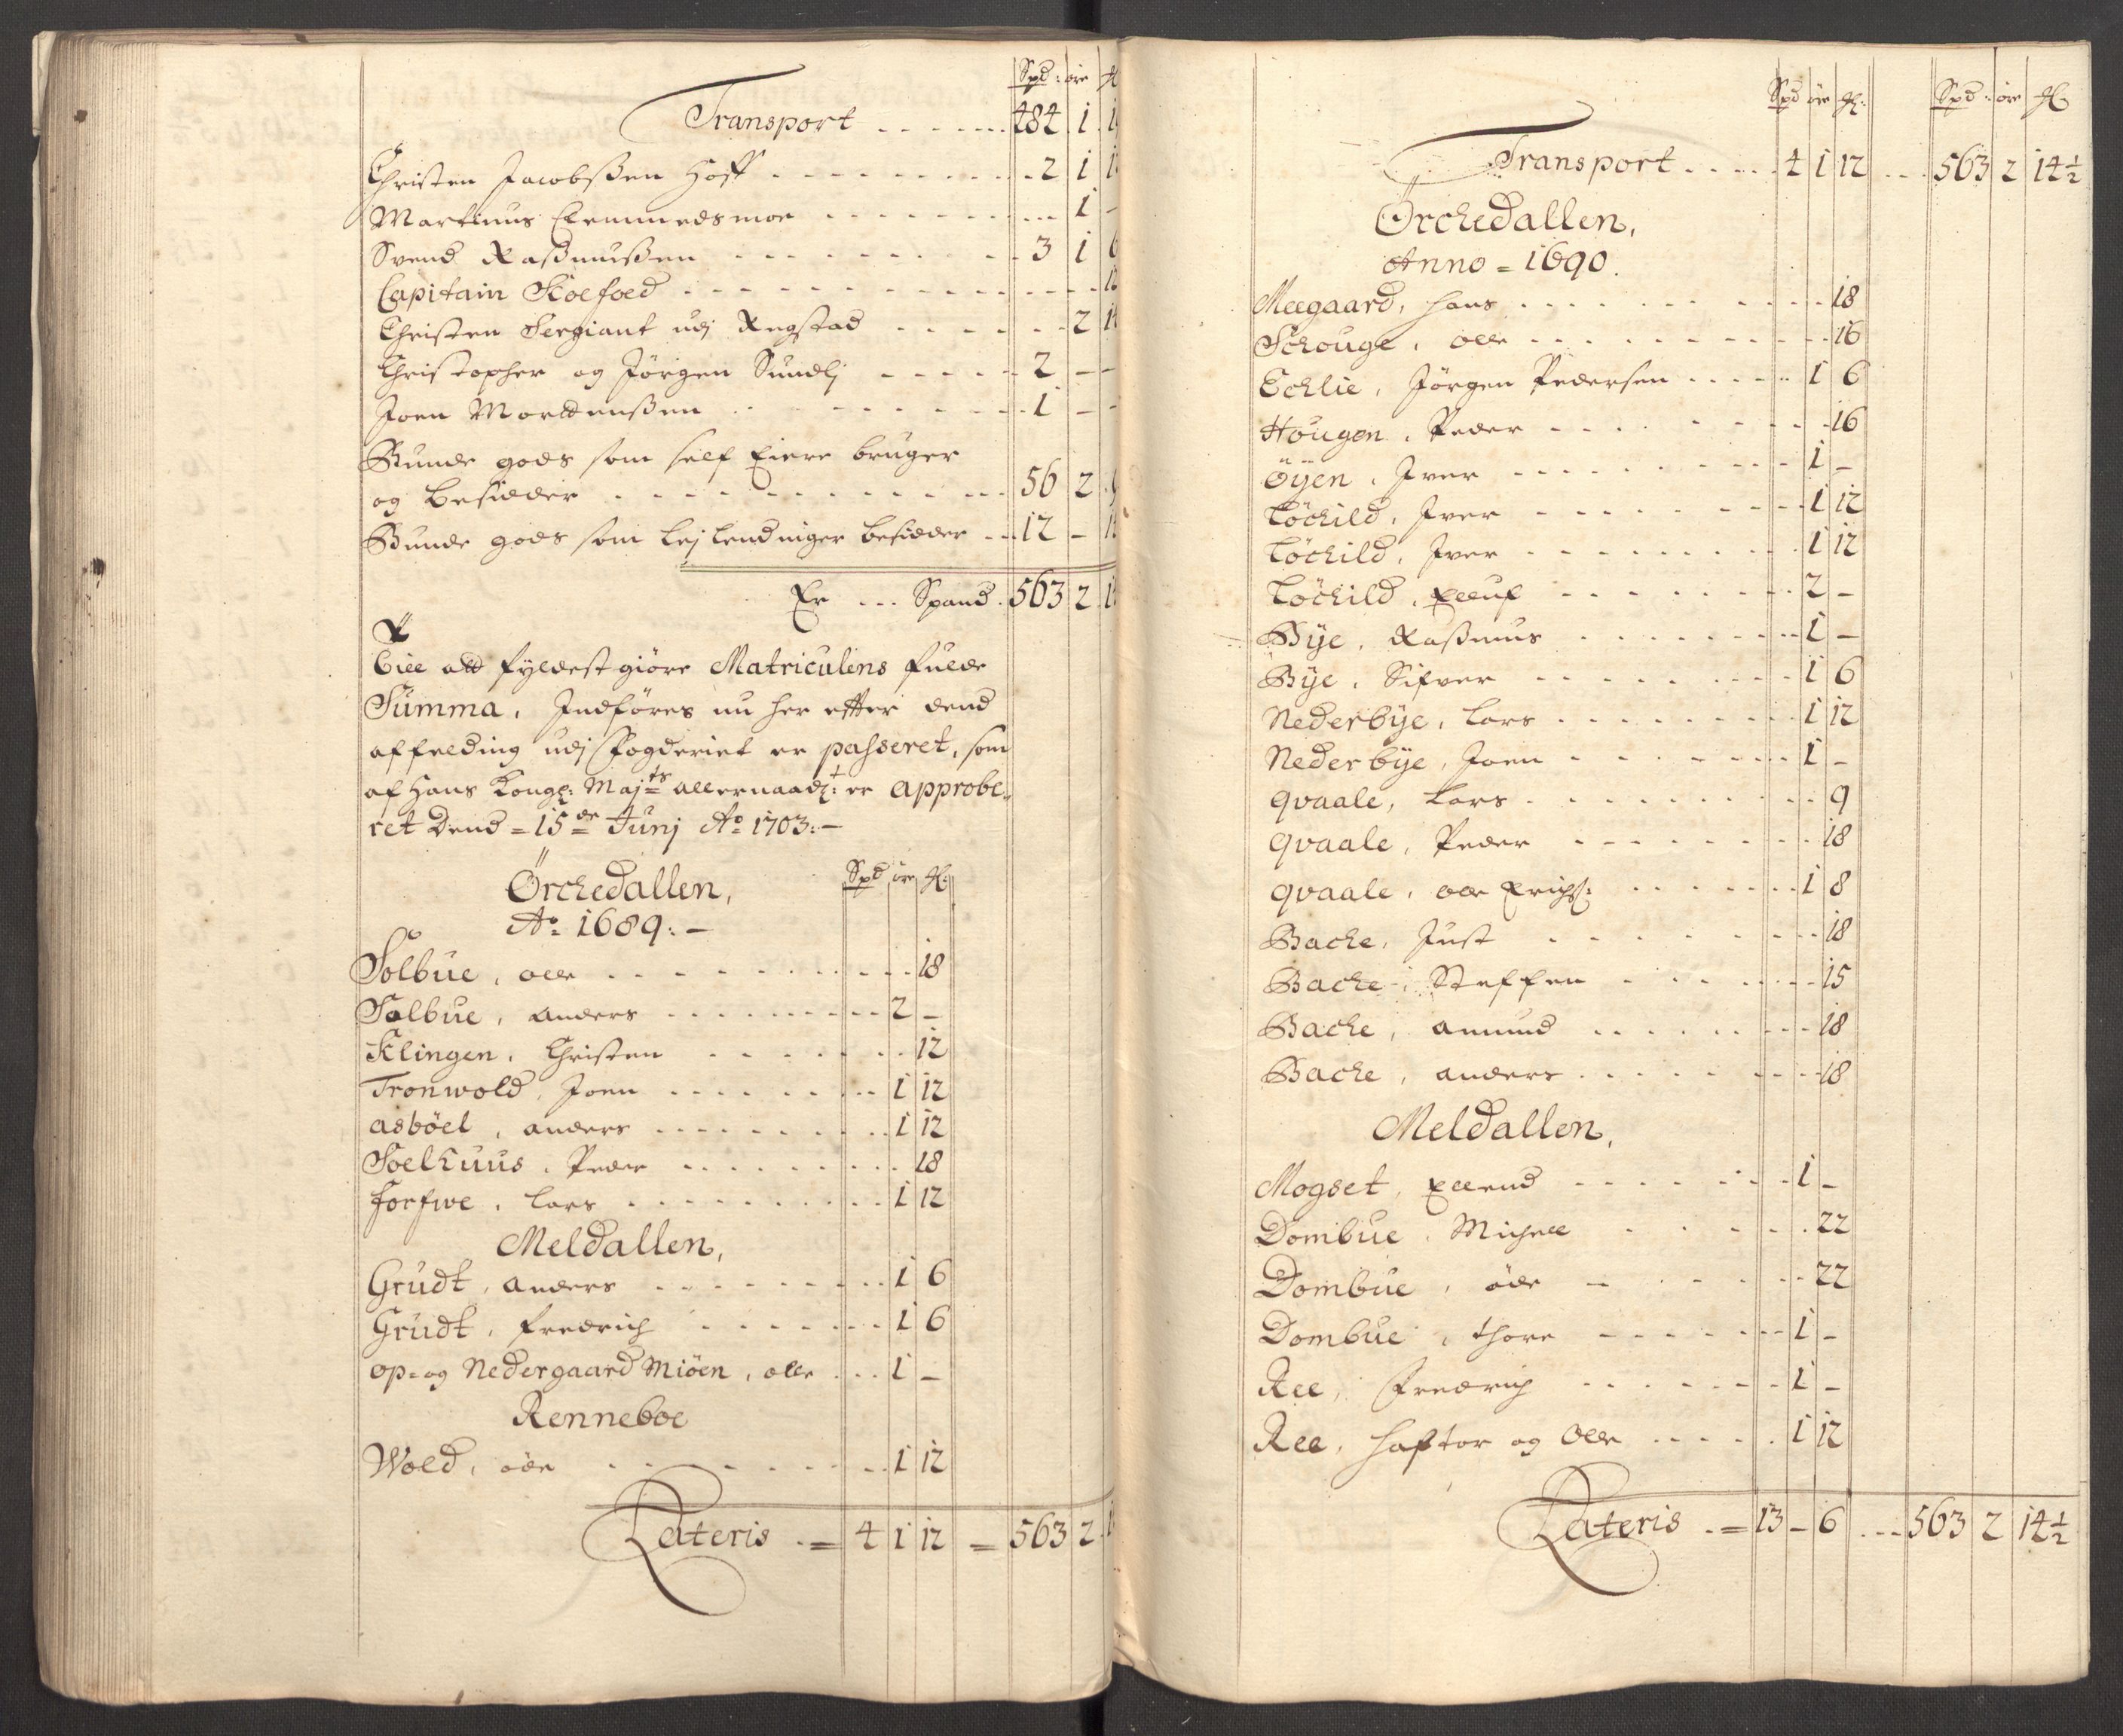 Spd: öre
Transport . . . . . . 484 1
Christen Jacobssen Hoff . . . . . . 2 1
Martinus Clemmedsmoe . . . . . . 1 -
Svend Rassmussen . . . . . . 3 1 6
Capitain Koefoed . . . . . .
Christen Sergiant udj Regstad . . . . . . 2
Christopher og Jörgen Sundlj . . . . . . 2 - -
Joen Mortenssen . . . . . . 1 - -
Bunde gods som self Eiere bruger
og besidder . . . . . . 56 2
Bunde gods som lejlendinger besidder . . . 12 -
Er . . . Spand . 563 2
Till att fyldest giöre Matriculens fulde
Summa, Indföres nu her effter dend
affelding udj Fogderiet er passeret, som
af Hans Kongl: Majts allernaadt: er approbe-
ret Dend = 15de Junj Ao 1703: -
Örchedallen, Spd öre
Ao 1689: -
Solbue, olle . . . . . . 18
Solbue, anders . . . . . . 2 -
Klingen, Christen . . . . . . 12
Tronwold, Joen . . . . . . 1 12
asböel, anders . . . . . . 1 12
Soelhuus, Peder . . . . . . 18
Forfwe, Lars . . . . . . 1 12
Meldallen,
Grudt, anders . . . . . . 1 6
Grudt, fredrich . . . . . . 1 6
op= og Nedergaard Miöen, olle . . . 1 -
Renneboe
Wold, öde . . . . . . 1 12
Lateris . = 4 1 12 = 563 2
Spd öre Spd: öre
Transport . . . . . 4 1 12 . . . 563 2 14½
Örchedallen,
Anno = 1690.
Meegaard, Hans . . . . . . 18
Schouge, olle . . . . . . 16
Echlie, Jörgen Pedersen . . . . . . 1 6
Hougen, Peder . . . . . . 16
öyen, Iver . . . . . . 1 -
Löchild, Iver . . . . . . 1 12
Löchild, Iver . . . . . . 1 12
Löchild, Elluf . . . . . . 2 -
Bye, Rassmus . . . . . . 1 -
Bye, Sifver . . . . . . 1 6
Nederbye, Lars . . . . . . 1 12
Nederbye, Joen . . . . . . 1 -
qvaale, Lars . . . . . . 9
qvaale, Peder . . . . . . 18
qvaale, olle Erichs: . . . . . . 1 8
Bache, Just . . . . . . 18
Bache, Steffen . . . . . . 15
Bache, amund . . . . . . 18
Bache, anders . . . . . . 18
Meldallen,
Mogset, Ellend . . . . . . 1 -
Dombue, Michell . . . . . . 22
Dombue, öde . . . . . . 22
Dombue, thore . . . . . . 1 -
Ree, Fredrich . . . . . . 1 -
Ree, Haftor og Olle . . . . . 1 12
Lateris . = 13 - 6 . . . 563 2 14½